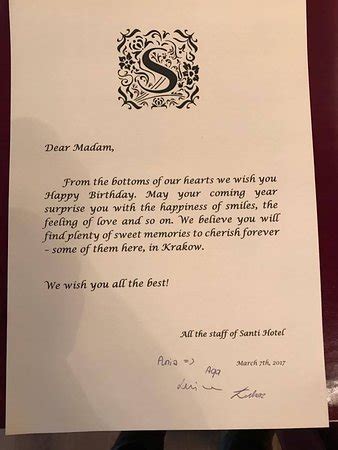 S
Dear Madam,
From the bottoms of our hearts we wish you
Happy Birthday. May your coming year
surprise you with the happiness of smiles, the
feeling of love and so on. We believe you will
find plenty of sweet memories to cherish forever
– some of them here, in Krakow.
We wish you all the best!
All the staff of Santi Hotel
March 7th, 2017
Ania =)
Aga